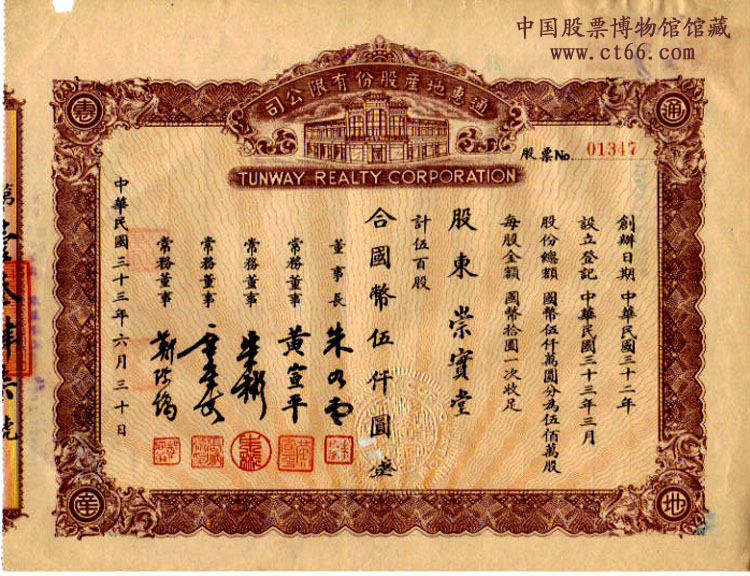 中国股票博物馆馆藏
www.ct66.com
通惠地產股份有限公司
TUNWAY REALTY CORPORATION
通
惠
地
產
股票No. 01347
創辦日期 中華民國三十二年
設立登記 中華民國三十三年三月
股份總額 國幣伍仟萬圓分為伍佰萬股
每股金額 國幣拾圓一次收足
股東 崇實堂
計伍百股
合國幣伍仟圓
董事長 朱
常務董事 黃宣平
常務董事
常務董事
常務董事 鄭
中華民國三十三年六月三十日
第
號